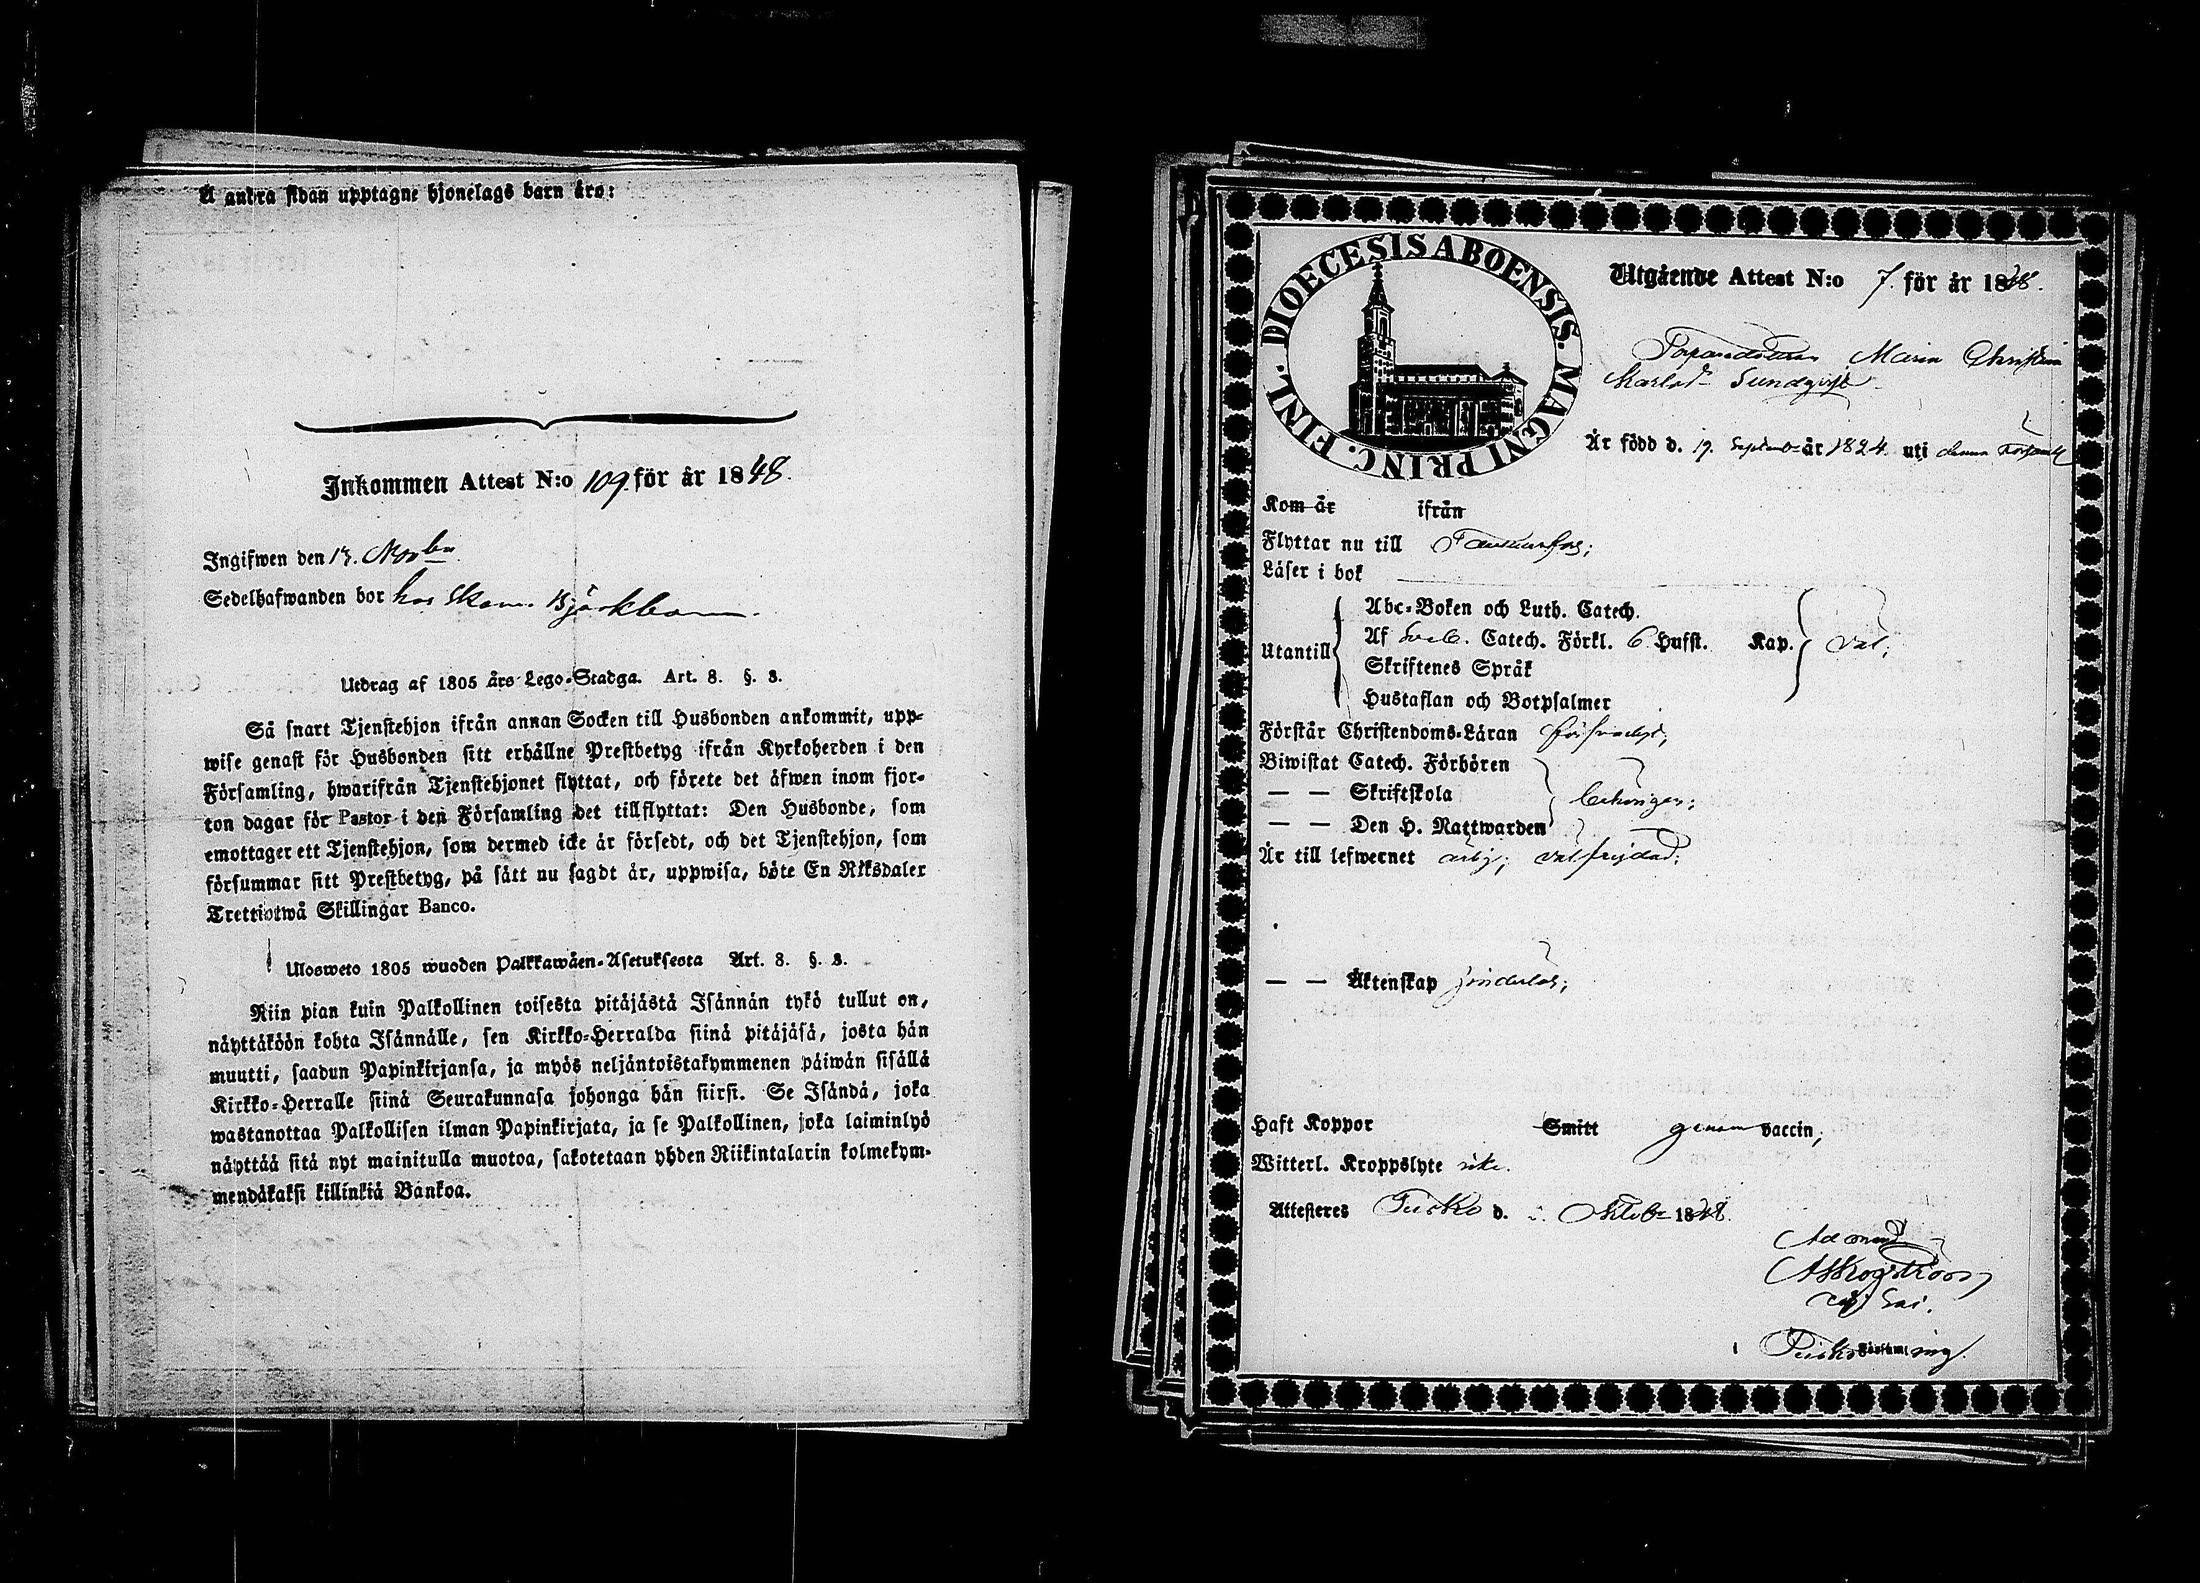 Å andra sidan upptagne hjonelags barn äro:
Inkommen Attest N:o 109 för år 1848.
Ingifwen den 13. Novbr
Sedelhafwanden bor hos Skom. Björkbom.
Utdrag af 1805 års Lego-Stadga. Art. 8. §. 3.
Så snart Tjenstehjon ifrån annan Socken till Husbonden ankommit, upp-
wise genast för Husbonden sitt erhållne Prestbetyg ifrån Kyrkoherden i den
Församling, hwarifrån Tjenstehjonet flyttat, och förete det äfwen inom fjor-
ton dagar för Pastor i den Församling det tillflyttat: Den Husbonde, som
emottager ett Tjenstehjon, som dermed icke är försedt, och det Tjenstehjon, som
försummar sitt Prestbetyg, på sätt nu sagdt är, uppwisa, böte En Riksdaler
Trettiotwå Skillingar Banco.
Ulosweto 1805 wuoden Palkkawäen-Asetuksesta Art. 8. §. 3.
Niin pian kuin Palkollinen toisesta pitäjästä Isännän tykö tullut on,
näyttäköön kohta Isännälle, sen Kirkko-Herralda siinä pitäjäsä, josta hän
muutti, saadun Papinkirjansa, ja myös neljäntoistakymmenen päiwän sisällä
Kirkko-Herralle siinä Seurakunnasa johonga hän siirsi. Se Isändä, joka
wastanottaa Palkollisen ilman Papinkirjata, ja se Palkollinen, joka laiminlyö
näyttää sitä nyt mainitulla muotoa, sakotetaan yhden Riikintalarin kolmekym-
mendäkaksi killinkiä Bankoa.
DIOECESIS ABOENSIS. MAGNI PRINC. FINL.
Utgående Attest N:o 7. för år 1848.
Maria Christina
Sundqvist
Är född d. 19. Septemb år 1824. uti denna Församl
Kom år ifrån
Flyttar nu till
Läser i bok
Abc-Boken och Luth. Catech.
Utantill Af Sveb. Catech. Förkl. 6 Hufst. Kap. väl;
Skriftenes Språk
Hustaflan och Botpsalmer
Förstår Christendoms-Läran försvarligt;
Biwistat Catech. Förhören
— — Skriftskola behörigen;
— — Den H. Nattwarden
Är till lefwernet ärlig; välfrejdad;
— — Äktenskap hinderlös;
Haft Koppor Smitt genom vaccin;
Witterl. Kroppslyte icke.
Attesteres Pusko d. Oktobr 1848.
Ad mand
Pusko Församling.